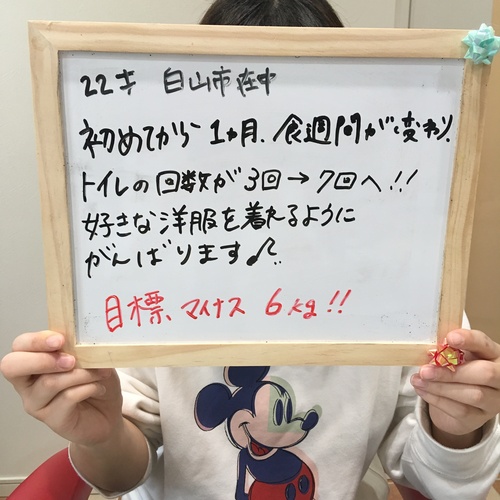 22才 白山市在中
初めてから1ヵ月、食週間が変わり、
トイレの回数が3回→7回へ!!
好きな洋服を着れるように
がんばります♪
目標、マイナス 6kg!!